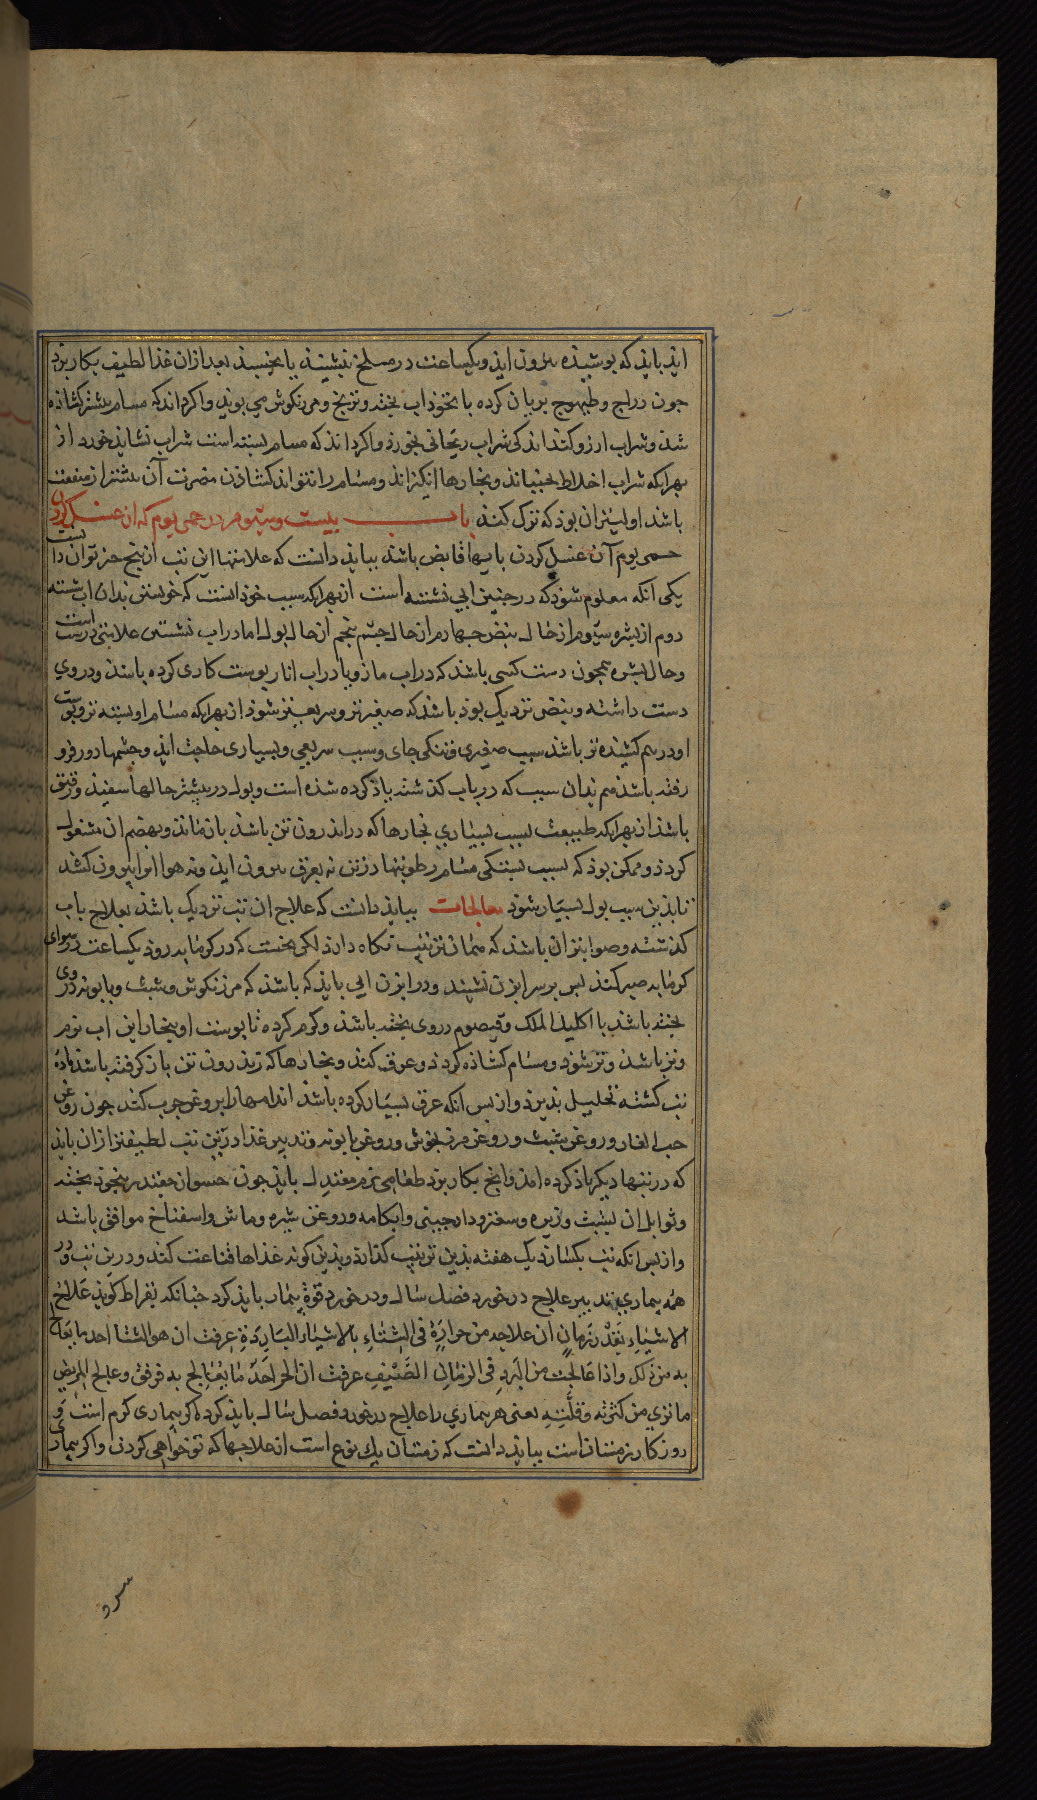 اید باید که پوشیده بیرون اید ویکساعت در مسلخ بنشیند یا بخسبد بعد ازان غذا لطیف بکار برد
جون دراج وطیهوج بریان کرده یا بنخود اب بخته وترنج ومرزنکوش می بوید واکر داند که مسام بیشتر کشاده
شد وشراب ارزو کند اندکی شراب ریحانی بخورد واکر داند که مسام بسته است شراب نشاید خورد از
بهرانکه شراب اخلاط بجنباند وبخارها انکیزاند ومسام را نتواند کشاذن مضرت آن بیشتر از منفعت
باشد اولیتر ان بوذ که ترک کند باب بیست وسیوم در حمی یوم که از غسل کردن
حمی یوم آن غسل کردن بابها قابض باشد بباید دانست که علامتها این تب از بنج جیز توان دانست
یکی انکه معلوم شوذ که در جنین ابی نشسته است از بهرانکه سبب خوذ انست که خویشتن بدان اب شسته
دوم از بشره سیوم از حال نبض جهارم از حال جشم بنجم از حال بول اما در اب نشستن علامتی درست است
وحال بشره همجون دست کسی باشد که در اب مازو یا در اب انار پوست کاری کرده باشد ودر وی
دست داشته ونبض نزدیک بوذ باشد که صغیرتر وسریعتر شوذ از بهرانکه مسام او بسته تر وپوست
او درهم کشیده تر باشد سبب صغیری وتنکی جای وسبب سریعی وبسیاری حاجت اید وجشمها دور فرو
رفته باشد هم بدان سبب که در باب کذشته یاذ کرده شذه است وبول در بیشتر حالها سفید ورقیق
باشد از بهرانکه طبیعت بسبب بسیاری بخارها که در اندرون تن باشد باز ماند وبهضم ان مشغول
کردد وممکن بوذ که بسبب بستکی مسام رطوبتها در تن نه بعرق بیرون اید ونه هوا انرا بیرون کشد
تا بدین سبب بول بسیار شوذ معالجات بباید دانست که علاج ان تب نزدیک باشد بعلاج باب
کذشته وصوابتر ان باشد که همان ترتیب نکاه دارد لکن نخست که در کرمابه روذ یکساعت در هوای
کرمابه صبر کند بس بر سر ابزن نشیند ودر ابزن ابی باید که باشد که مرزنکوش وشبث وبابونه در وی
بخته باشد با اکلیل الملک وقیصوم در وی بخته باشد وکرم کرده تا پوست او ببخار این اب نرم
وتر باشد وتر شوذ ومسام کشاذه کردد وعرق کند وبخارها که در اندرون تن باز کرفته باشد ماده
تب کشته تحلیل بذیرد واز بس انکه عرق بسیار کرده باشد اندامها را بروغن جرب کند جون روغن
حب الغار وروغن شبث وروغن مرزنکوش وروغن بابونه وتدبیر غذا در این تب لطیفتر ازان باید
که در تبها دیکر یاذ کرده امد وانج بکار برد طعامی نرم معتدل باید جون حسو ان معتدل بنخود بخته
وتوابل ان شبث وزیره وسعتر ودارجینی وابکامه وروغن شیره وماش واسفناخ موافق باشد
واز بس انکه تب بکسارد یک هفته بدین ترتیب کذارد وبدین کونه غذاها قناعت کند ودرین تب ودر
همه بیماری تدبیر علاج در خورد فصل سال ودر خورد قوة بیمار باید کرد جنانکه بقراط کوید علاج
الاشیاء بقدر زمان ان علاجه من حرارة فی الشتاء بالاشیاء الباردة عرفت ان هوا الشتا احد ما یعالج
به من ذلک واذا عالجت من البرد فی الزمان الصیف عرفت ان الحر احد ما یعالج به فرفق وعالج المریض
ما تری من کثرته وقلته یعنی هر بیماری را علاج در خورد فصل سال باید کرد که اکر بیماری کرم است و
روزکار زمستان است بباید دانست که زمستان یک نوع است از علاجها که تو خواهی کردن واکر بیماری
سرد و